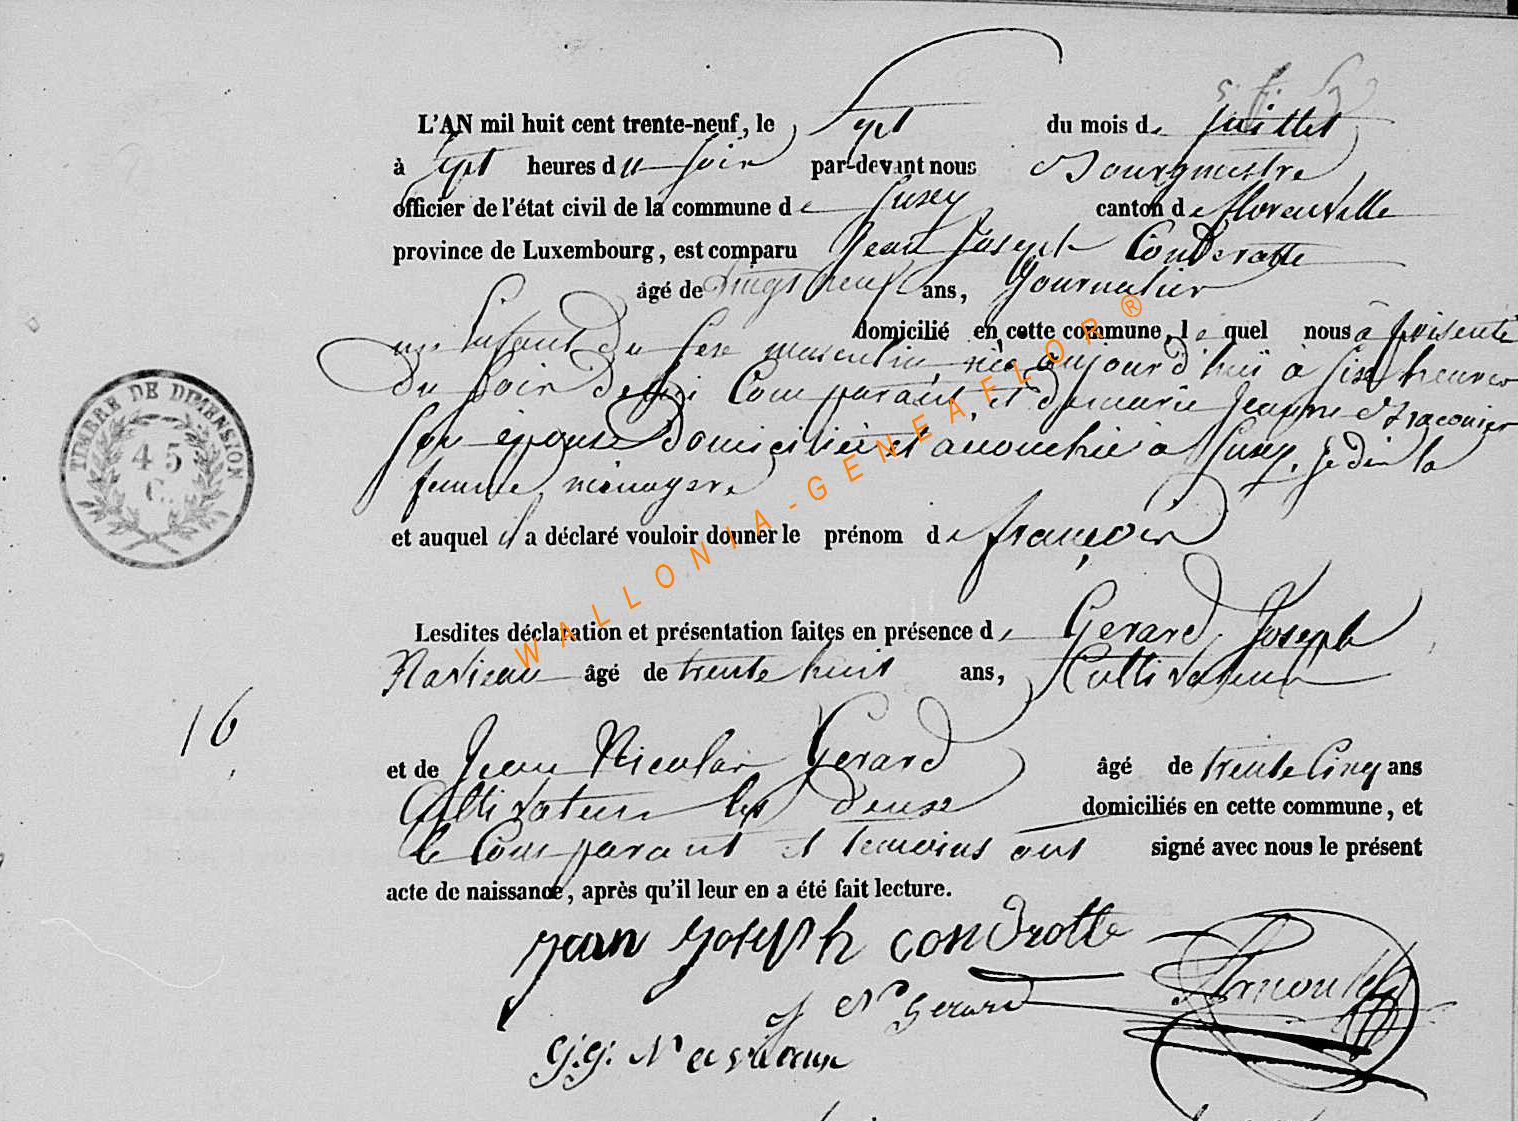 L'AN mil huit cent trente-neuf, le Sept du mois de Juillet
à Sept heures du Soir par-devant nous Bourgmestre
officier de l'état civil de la commune de Suxy canton de florenville
province de Luxembourg, est comparu Jean Joseph Condrotte
âgé de vingt neuf ans, Journalier
domicilié en cette commune, lequel nous à présenté
un Enfant du sexe masculin, née aujourd'hui à six heures
du Soir de lui Comparant, et de marie Jeanne
Son épouse Domiciliée et accouchée à Suxy, je dis la
femme ménagere
et auquel il a déclaré vouloir donner le prénom de françois
Lesdites déclaration et présentation faites en présence de Gerard Joseph
Navieau âgé de trente huit ans, Cultivateur
et de Jean Nicolas Gerard âgé de trente Cinq ans
Cultivateur les deux domiciliés en cette commune, et
le Comparant et temoins ont signé avec nous le présent
acte de naissance, après qu'il leur en a été fait lecture.
jean joseph condrotte
J N Gerard
G.J. Navieaux
16
TIMBRE DE DIMENSION
45
C.
WALLONIA-GENEAFLOR®